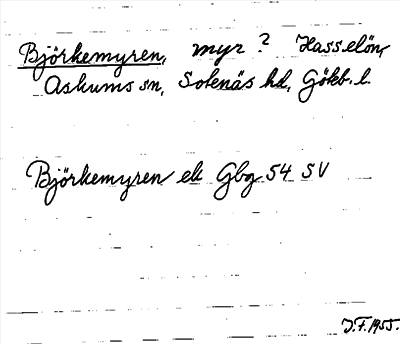 Björkemyren, myr? Hasselön,
Askums sn, Sotenäs hd, Gökb. l.
Björkemyren ek Gbg 54 SV
J.F. 1955.